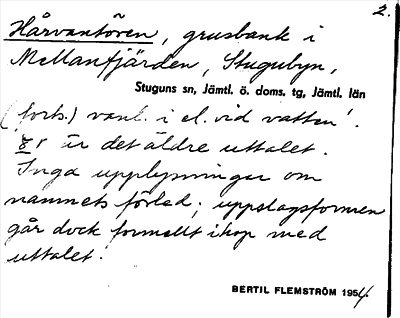 2.
Hårvantören, grusbank i
Mellanfjärden, Stugubyn,
Stuguns sn, Jämtl. ö. doms. tg, Jämtl. län
(forts.) vanl. i el. vid vatten'.
är det äldre uttalet.
Inga upplysningar om
namnets förled; uppslagsformen
går dock formellt ihop med
uttalet.
BERTIL FLEMSTRÖM 1954.